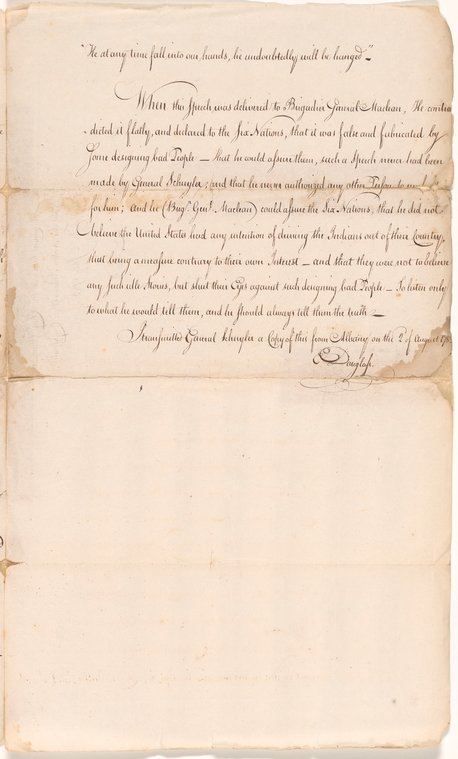 "He at any time fall into our hands, he undoubtedly will be hanged"_
When this Speech was delivered to Brigadier General Maclean, He contra
dicted it flatly, and declared to the Six Nations, that it was false and fabricated by
some designing bad People _ that he could assure them, such a Speech never had been
made by General Schuyler; and that he never authorized any other Person to
for him; and he (Brigr. Genl. Maclean) could assure the Six Nations, that he did not
believe the United States had any intention of driving the Indians out of their Country,
that being a measure contrary to their own Interest _ and that they were not to believe
any such idle Stories, but shut their Ears against such designing bad People _ To listen only
to what he would tell them, and he should always tell them the truth _
Transmitted General Schuyler a Copy of this from Albany on the 2d of August
E Douglass.